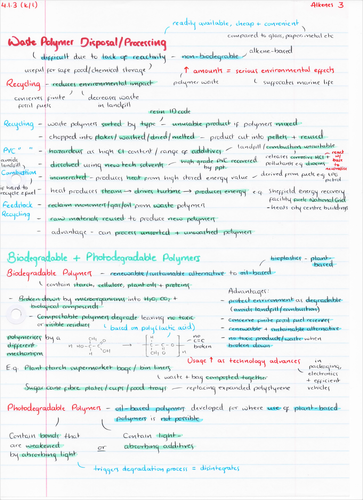 4.1.3 (k/l)
Alkenes 3
readily available, cheap + convenient
compared to glass, paper, metal etc
Waste Polymer Disposal/Processing
difficult due to lack of reactivity - non-biodegradable
alkene-based
useful for safe food/chemical storage
↑ amounts = serious environmental effects
Recycling - reduces environmental impact
polymer waste
suffocates marine life
conserves finite fossil fuels
decreases waste in landfill
resin ID code
Recycling - waste polymers sorted by type - unusable product if polymers mixed
- chopped into flakes/washed/dried/melted - product cut into pellets + reused
PVC " " - hazardous as high Cl content / range of additives
landfill/combustion unsustainable
- dissolved using new tech solvents - high grade PVC recovered by ppt.
releases corrosive HCl + pollutants e.g. dioxins
Combustion - incinerated - produces heat from high stored energy value
derived from fuels e.g. oil
is hard to recycle = fuel
- heat produces steam → drives turbine → produces energy
e.g. Sheffield energy recovery facility
- heats city centre buildings
Feedstock Recycling - reclaim monomer/gas/oil from waste polymers
- raw materials reused to produce new polymers
- advantage - can process unsorted + unwashed polymers
Biodegradable + Photodegradable Polymers
bioplastics - plant-based
Biodegradable Polymers - renewable/sustainable alternative to oil-based
contain starch, cellulose, plant oils + proteins
Advantages:
- Broken down by microorganisms into H₂O, CO₂ + biological compounds
- protect environment as degradable (avoids landfill/incineration)
- Compostable polymers degrade leaving no toxic or visible residues
- conserve finite fossil fuel reserves
- renewable + sustainable alternative
based on poly(lactic acid)
- no toxic products/waste when broken down
polymerises by a different mechanism
Usage ↑ as technology advances
E.g. Plant starch supermarket bags/bin liners
waste + bag composted together
in packaging, electronics + efficient vehicles
Sugar cane fibre plates/cups/food trays - replacing expanded polystyrene
Photodegradable Polymers - oil-based polymers developed for where use of plant-based polymers is not possible
Contain bonds that are weakened by absorbing light
or
Contain light-absorbing additives
trigger degradation process = disintegrates